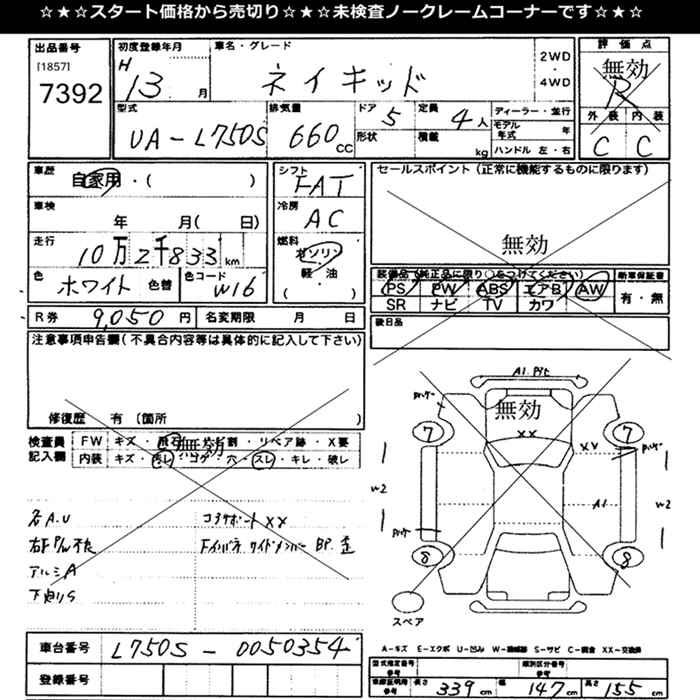 ☆★☆★スタート価格から売切り☆★☆★未検査ノークレームコーナーです☆★☆
出品番号 初度登録年月 車名・グレード 評価点
[1857] H 2WD 無効
7392 13 月 ネイキッド 4WD R
型式 排気量 ドア 定員 ディーラー・並行 外装 内装
UA-L750S 660 CC 5 4人 モデル年式 年 C C
形状 積載 kg ハンドル 左・右
車歴 自家用・( ) シフト FAT セールスポイント(正常に機能するものに限ります)
車検 年 月( 日) 冷房 AC 無効
走行 10万2千833km 燃料 ガソリン
色 ホワイト 色替 色コード W16 軽・油
( )
装備品(純正品に限り○をつけてください) 新車保証書
PS PW ABS エアB AW 有・無
SR ナビ TV カワ
R券 9,050円 名変期限 月 日 後日品
注意事項申告欄(不具合内容等は具体的に記入して下さい)
修復歴 有 (箇所 )
検査員 FW キズ・飛石 無効 割・リペア跡・X要
記入欄 内装 キズ・汚レ・コゲ・穴・スレ・キレ・破レ
各A.U コアサポートXX
アルミA
下廻りS
無効
XX XX
7 7
W2 A1 W2
スペア
車台番号 L750S-0050354
登録番号
A-キズ E-エクボ U-凹み S-サビ C-腐食 XX-交換済
型式指定番号 参考 類別区分番号 参考
車検証利用 参考 長さ 339cm 幅 147cm 高さ 155cm